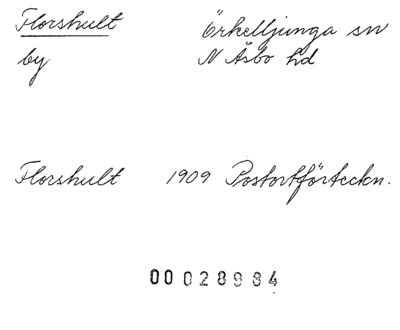 Florshult Örkelljunga sn
by N Åsbo hd
Florshult 1909 Postortförteckn.
00 028984